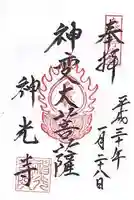 奉拝
平成三十年
一月二十八日
神變大菩薩
神光寺